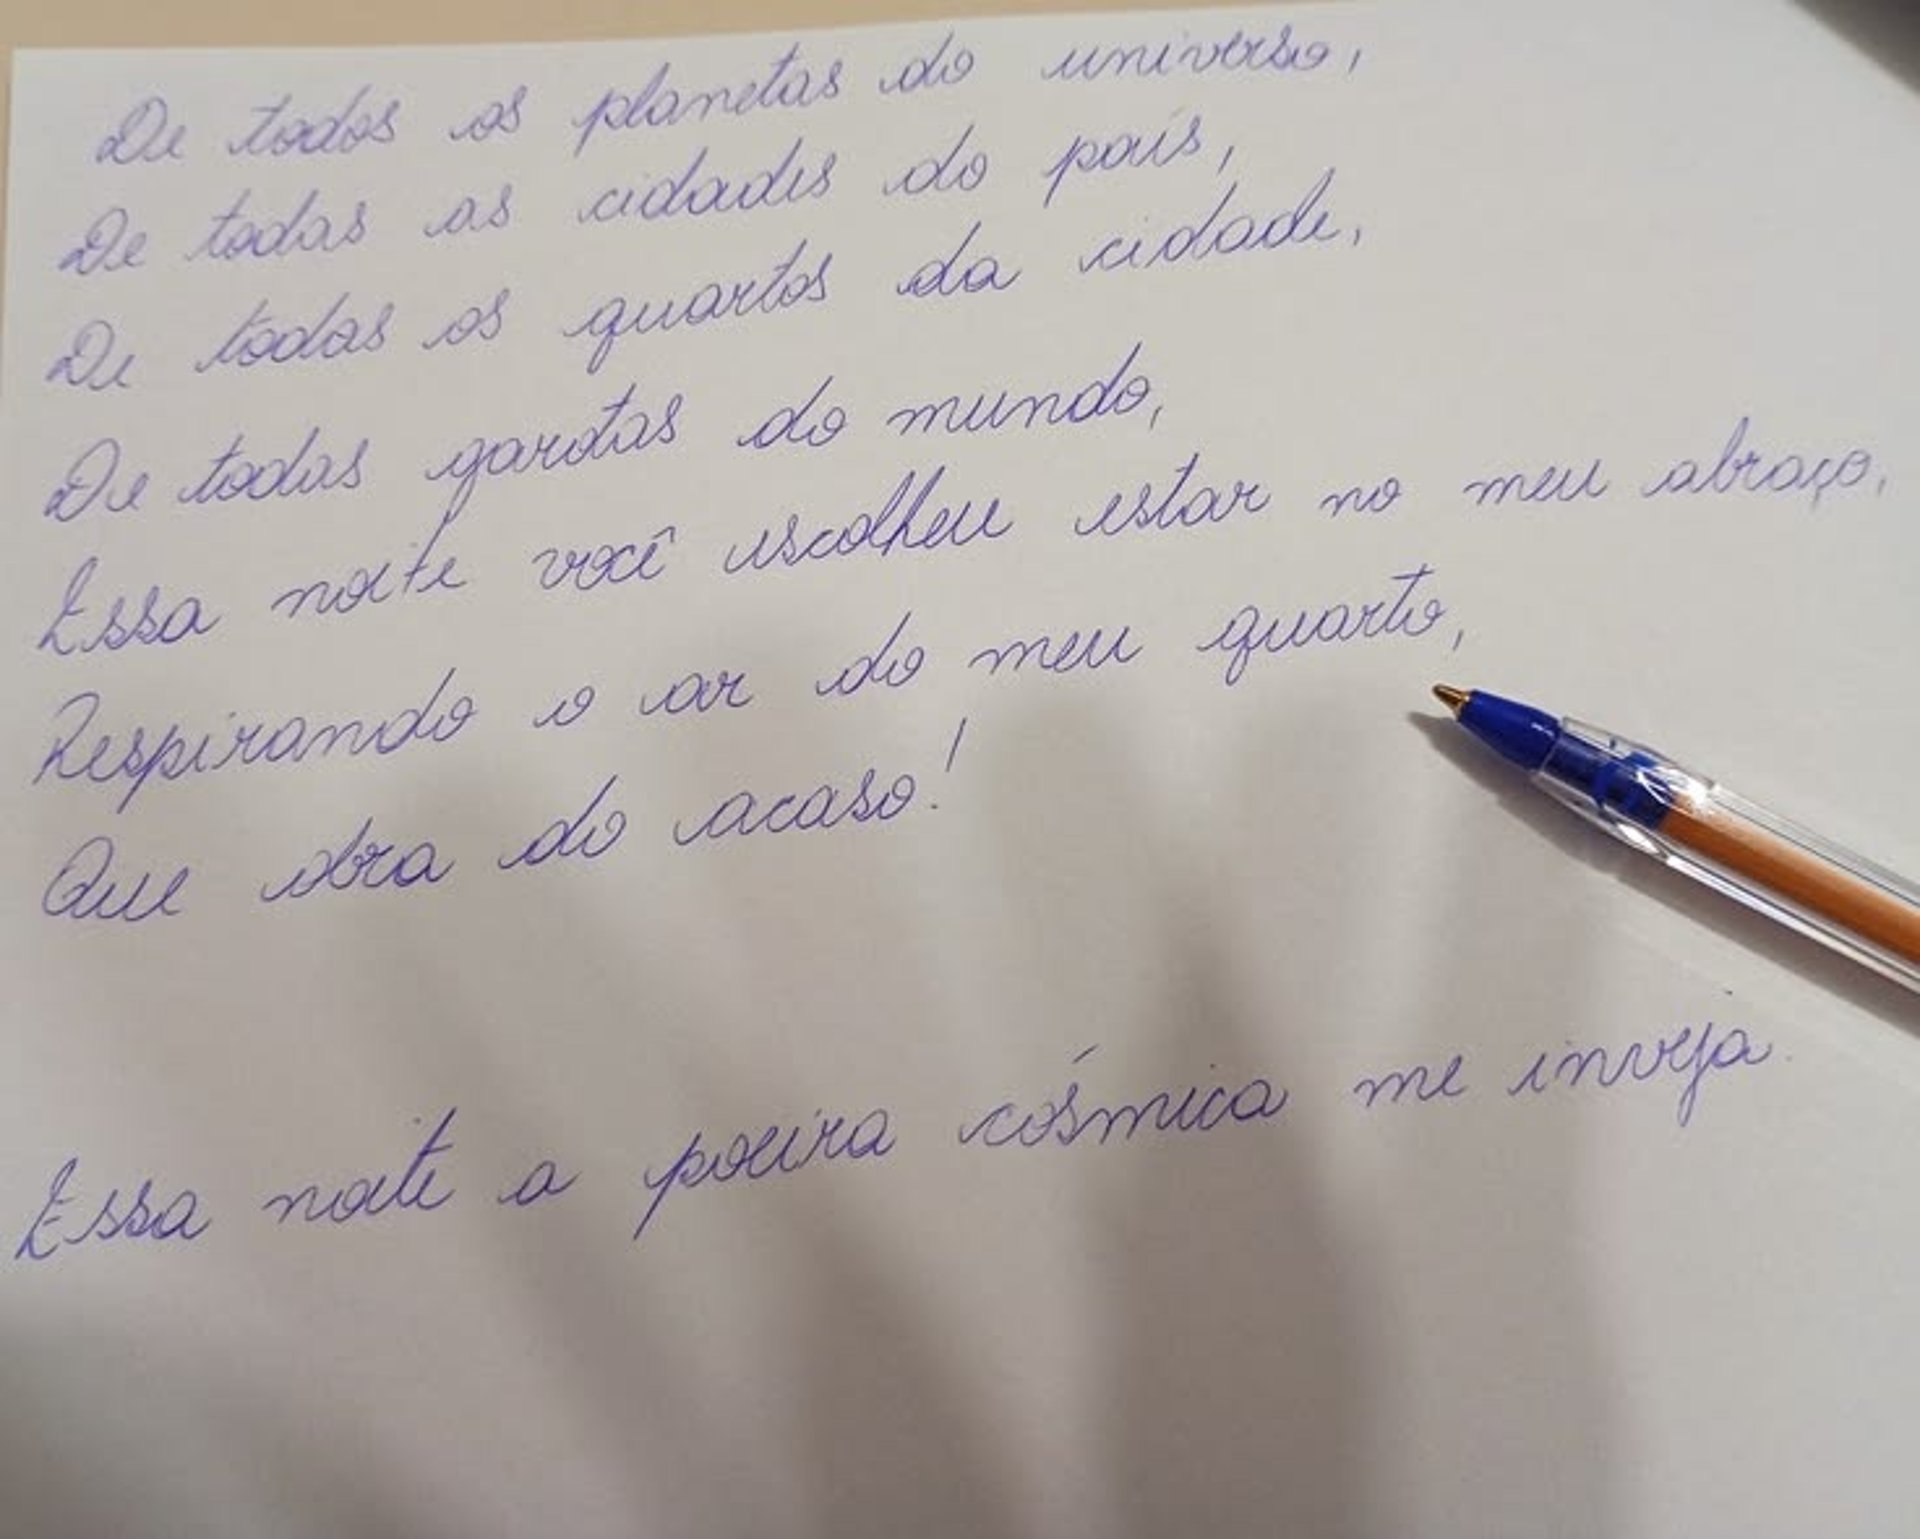 De todos os planetas do universo,
De todas as cidades do país,
De todos os quartos da cidade,
De todas garotas do mundo,
Essa noite você escolheu estar no meu abraço,
Respirando o ar do meu quarto,
Que obra do acaso!
Essa noite a poeira cósmica me inveja.